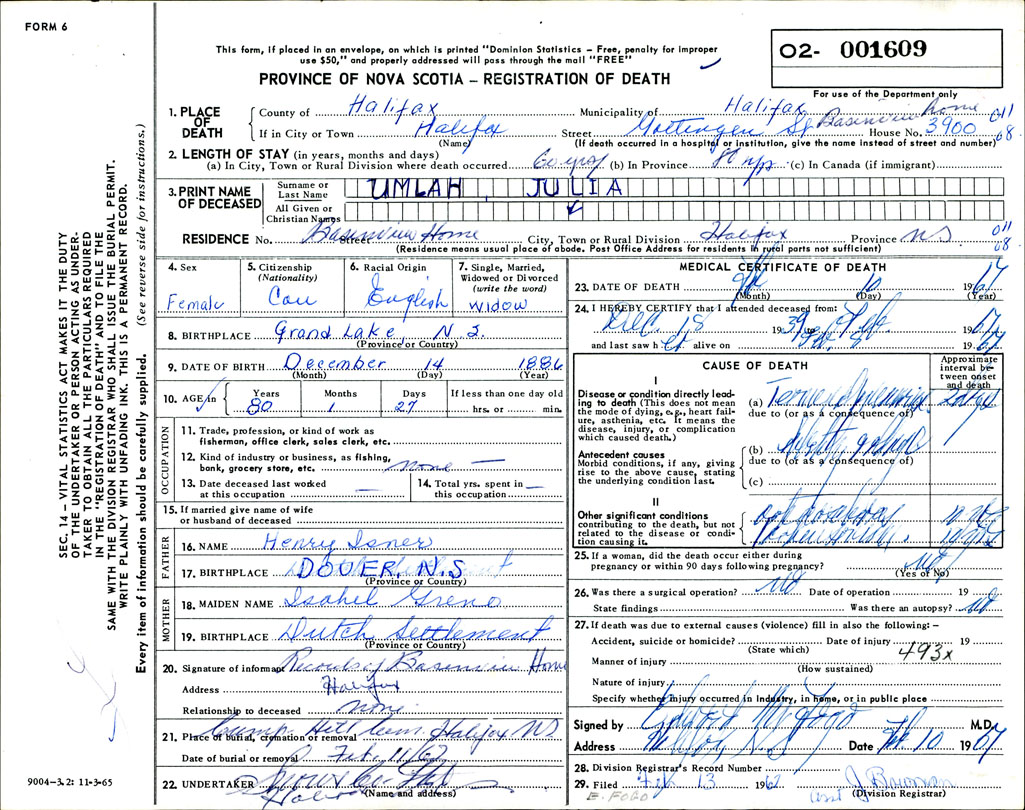 FORM 6
This form, if placed in an envelope, on which is printed "Dominion Statistics – Free, penalty for improper
use $50," and properly addressed will pass through the mail "FREE"
PROVINCE OF NOVA SCOTIA – REGISTRATION OF DEATH
02- 001609
For use of the Department only
1. PLACE OF DEATH
County of Halifax Municipality of Halifax Basinview Home 011
If in City or Town Halifax Street Gottingen St House No. 3900 68
(Name) (If death occurred in a hospital or institution, give the name instead of street and number)
2. LENGTH OF STAY (in years, months and days)
(a) In City, Town or Rural Division where death occurred 60 yrs (b) In Province 80 yrs (c) In Canada (if immigrant)
3. PRINT NAME OF DECEASED
Surname or Last Name UMLAH, JULIA
All Given or Christian Names
RESIDENCE No. Basinview Home Street City, Town or Rural Division Halifax Province NS 011
(Residence means usual place of abode. Post Office Address for residents in rural parts not sufficient) 68
4. Sex Female
5. Citizenship (Nationality) Can
6. Racial Origin English
7. Single, Married, Widowed or Divorced (write the word) Widow
8. BIRTHPLACE Grand Lake, N.S.
(Province or Country)
9. DATE OF BIRTH December 14 1886
(Month) (Day) (Year)
10. AGE in Years 80 Months 1 Days 27 If less than one day old hrs. or min.
OCCUPATION
11. Trade, profession, or kind of work as
fisherman, office clerk, sales clerk, etc.
12. Kind of industry or business, as fishing,
bank, grocery store, etc. none —
13. Date deceased last worked
at this occupation —
14. Total yrs. spent in
this occupation —
15. If married give name of wife
or husband of deceased
FATHER
16. NAME Henry Isner
17. BIRTHPLACE DOVER, N.S
(Province or Country)
MOTHER
18. MAIDEN NAME Isabel Greno
19. BIRTHPLACE Dutch Settlement
(Province or Country)
20. Signature of informant Records of Basinview Home
Address Halifax
Relationship to deceased none
21. Place of burial, cremation or removal Hill Cem Halifax NS
Date of burial or removal Feb. 11/67
22. UNDERTAKER Snow & Co
Halifax (Name and address)
MEDICAL CERTIFICATE OF DEATH
23. DATE OF DEATH Feb 10 1967
(Month) (Day) (Year)
24. I HEREBY CERTIFY that I attended deceased from:
Dec. 18 1939 to Feb 1967
and last saw her alive on 1967
CAUSE OF DEATH
Approximate interval between onset and death
I
Disease or condition directly leading to death (This does not mean
the mode of dying, e.g., heart failure, asthenia, etc. It means the
disease, injury, or complication
which caused death.)
(a) Pneumonia
due to (or as a consequence of)
Antecedent causes
Morbid conditions, if any, giving
rise to the above cause, stating
the underlying condition last.
(b)
due to (or as a consequence of)
(c)
II
Other significant conditions
contributing to the death, but not
related to the disease or condition causing it.
25. If a woman, did the death occur either during
pregnancy or within 90 days following pregnancy? No
(Yes or No)
26. Was there a surgical operation? No Date of operation 19
State findings Was there an autopsy? No
27. If death was due to external causes (violence) fill in also the following: –
Accident, suicide or homicide? Date of injury 19
(State which) 493x
Manner of injury
(How sustained)
Nature of injury
Specify whether injury occurred in industry, in home, or in public place
Signed by M.D.
Address Halifax N.S. Date Feb. 10 1967
28. Division Registrar's Record Number
29. Filed Feb 13 1967
E. FOGO asst (Division Registrar)
SEC. 14 – VITAL STATISTICS ACT MAKES IT THE DUTY
OF THE UNDERTAKER OR PERSON ACTING AS UNDER-
TAKER TO OBTAIN ALL THE PARTICULARS REQUIRED
IN THE "REGISTRATION OF DEATH" AND TO FILE THE
SAME WITH THE DIVISION REGISTRAR WHO SHALL ISSUE THE BURIAL PERMIT.
WRITE PLAINLY WITH UNFADING INK. THIS IS A PERMANENT RECORD.
Every item of information should be carefully supplied. (See reverse side for instructions.)
9004-3.2: 11-3-65